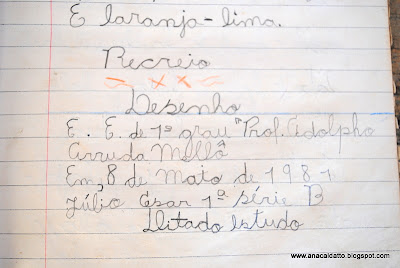 E laranja-lima.
Recreio
Desenho
E. E. de 1º grau "Prof. Adolpho
Arruda Mellô"
Em, 8 de Maio de 1987
Júlio César 1ª série B
Ditado Estudo
www.anacaldatto.blogspot.com